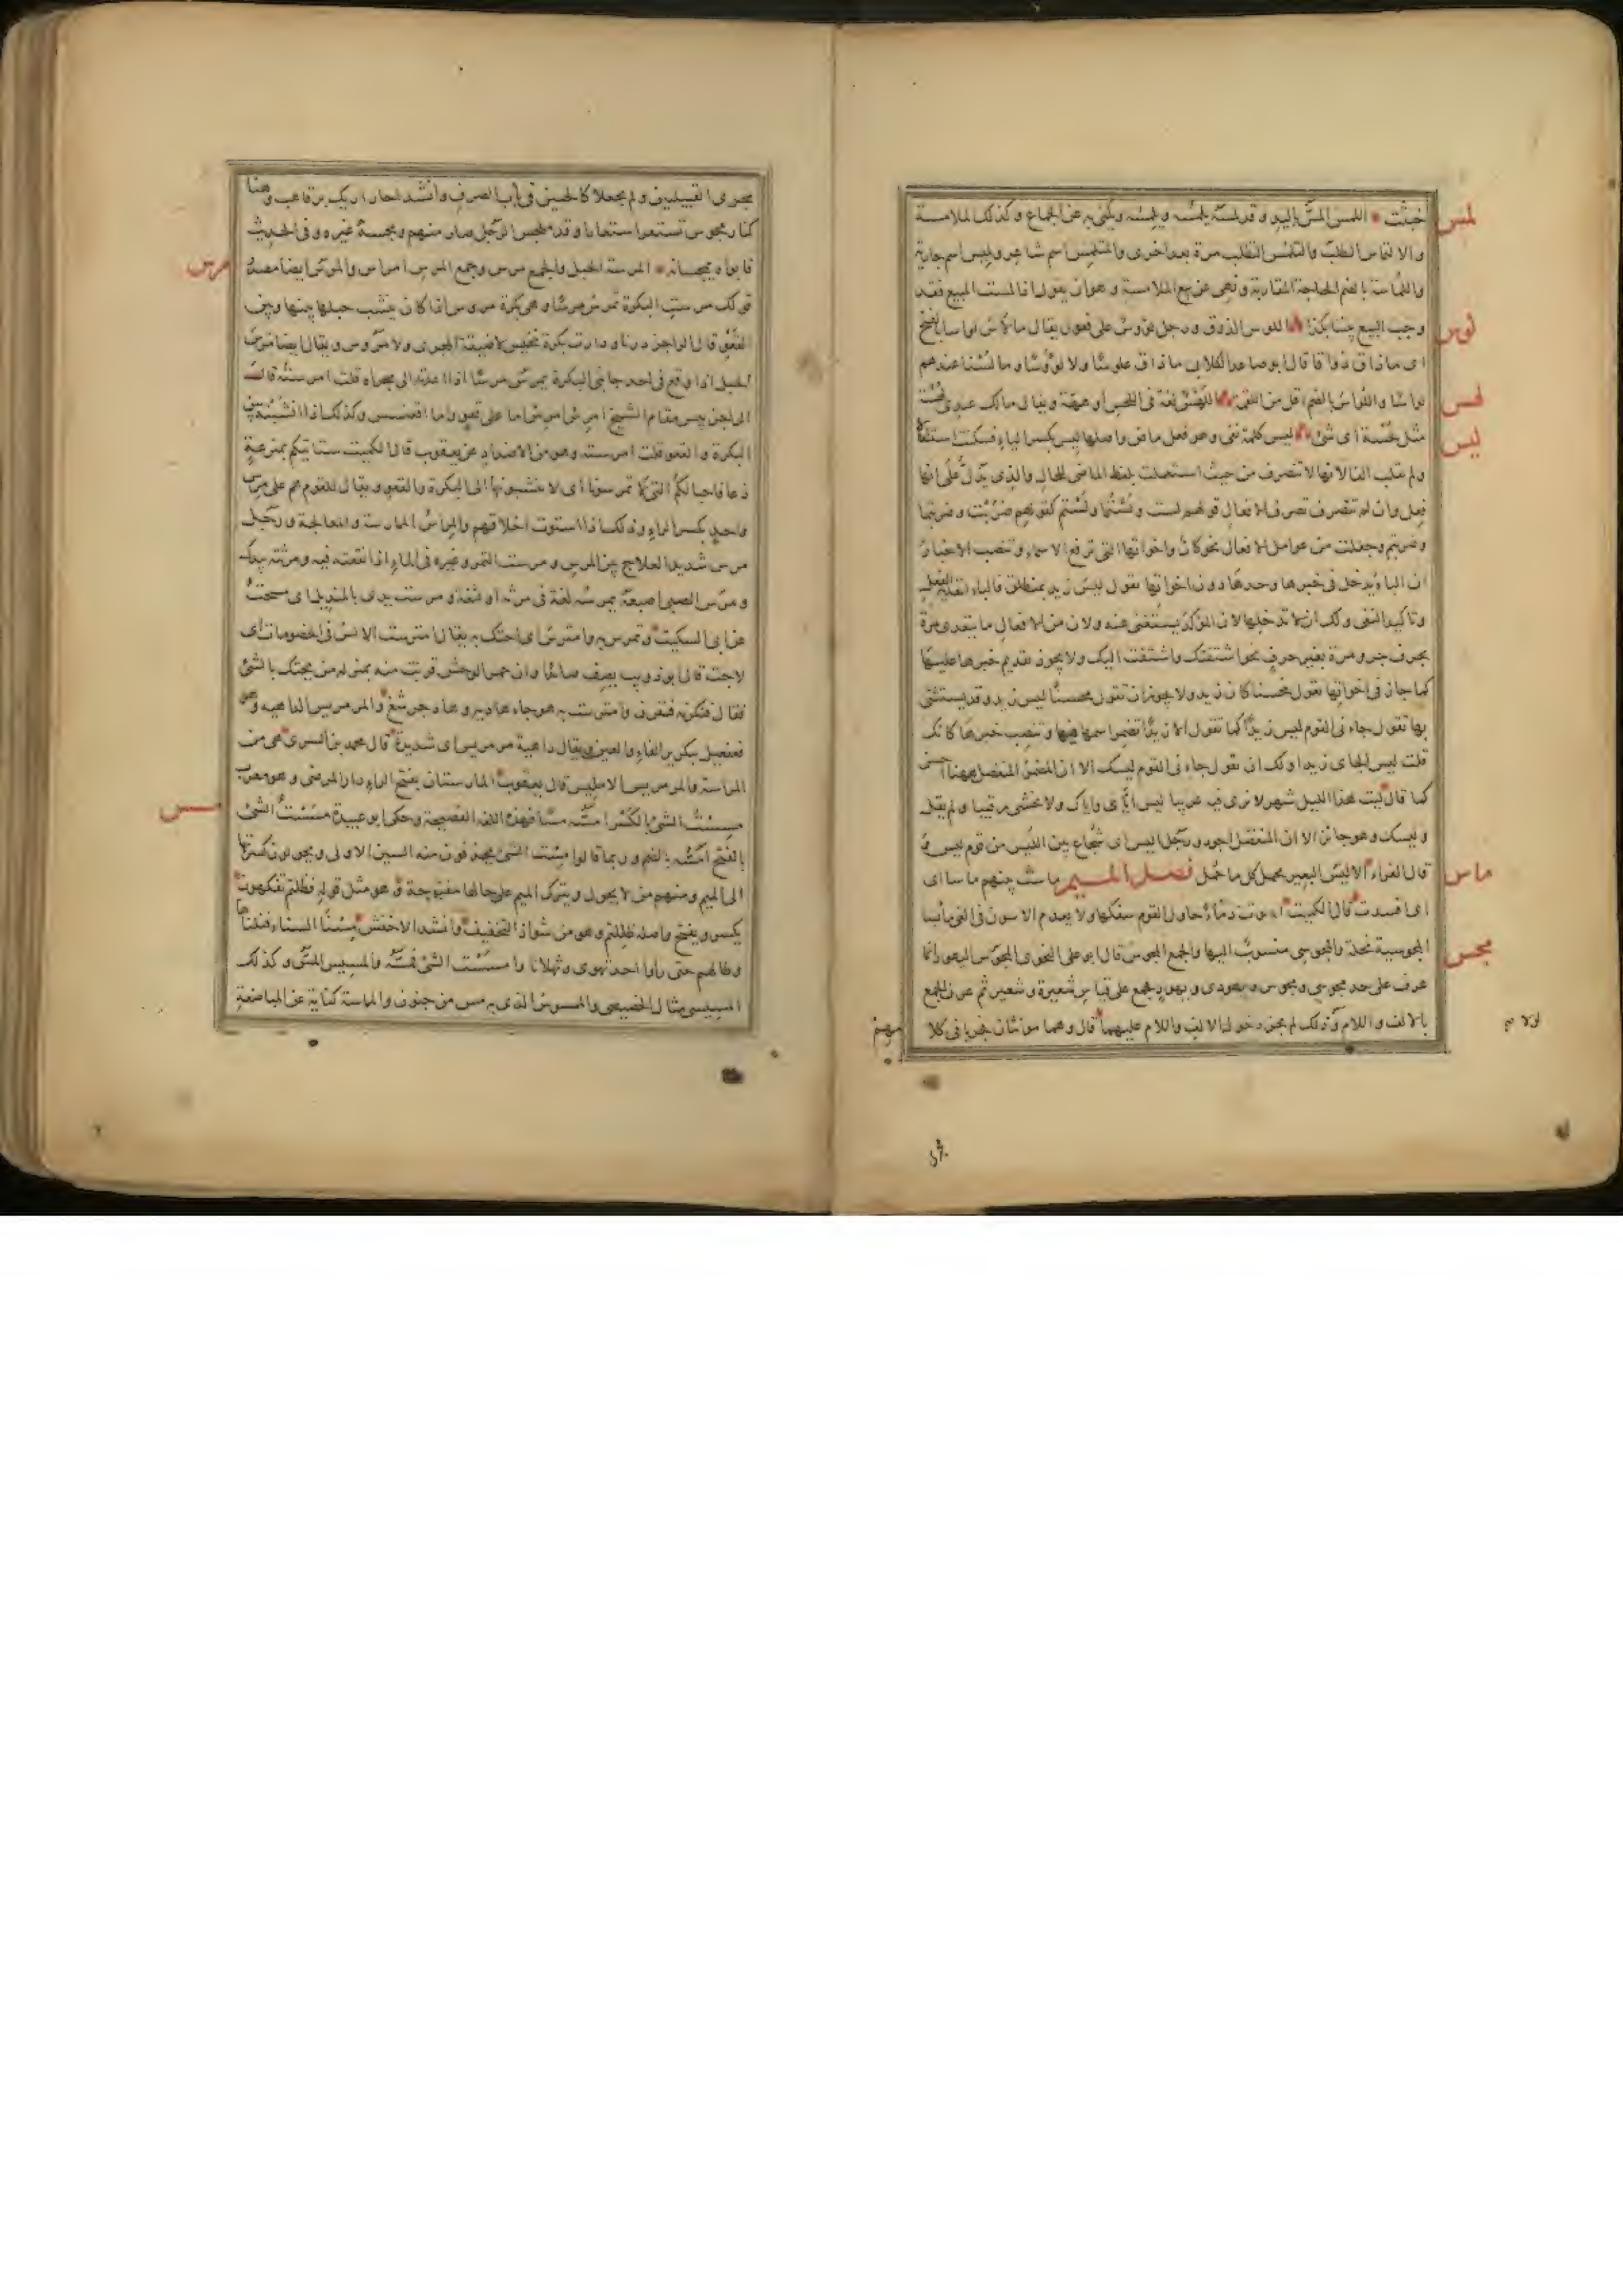 لمس
خبثت اللمس المسّ باليد وقد لمسه يلمسه ويلمسه ويكنى به عن الجماع وكذلك الملامسة
والالتماس الطلب والتلمّس التطلب مرة بعد اخرى والمتلمس اسم شاعر ولميس اسم جارية
واللماسة بالضم الحاجة المقاربة ونهى عن بيع الملامسة وهو ان يقول اذا لمست المبيع فقد
لوس
وجب البيع بيننا بكذا اللوس الذوق ورجل لؤوس على فعول يقال ما لاس لواسا بالفتح
اى ما ذاق ذواقا قال ابو صاعد الكلابى ما ذاق علوسا ولا لؤوسا وما لسنا عندهم
لهس
لواسا واللواس بالضم اقل من اللقمة اللهس لغة فى اللحس او ههّة ويقال مالك عندى لهسة
ليس
مثل لحسة اى شئ ليس كلمة نفى وهو فعل ماض واصلها ليس بكسر الياء فسكنت استثقالا
ولم تقلب الفا لانها لا تتصرف من حيث استعملت بلفظ الماضى للحال والذى يدلّ على انها
فعل وان لم تتصرف تصرف الافعال قولهم لست ولستما ولستم كقولهم ضربت وضربتما
وضربتم وجعلت من عوامل الافعال نحو كان واخواتها التى ترفع الاسماء وتنصب الاخبار
ان الباء يدخل فى خبرها وحدها دون اخواتها تقول ليس زيد بمنطلق فالباء لتعدية الفعل
وتاكيد النفى ولك ان لا تدخلها لان المؤكد يستغنى عنه ولان من الافعال ما يتعدى مرة
بحرف جر ومرة بغير حرف نحو اشتقتك واشتقت اليك ولا يجوز تقديم خبرها عليها
كما جاز فى اخواتها تقول محسنا كان زيد ولا يجوز ان تقول محسنا ليس زيد وقد يستثنى
بها تقول جاءنى القوم ليس زيدا كما تقول الا زيدا تضمر اسمها فيها وتنصب خبرها كانك
قلت ليس الجاى زيدا ولك ان تقول جاءنى القوم ليسك الا ان المضمر المنفصل ههنا احسن
كما قال ليت هذا الليل شهر لا نرى فيه عريبا ليس اياى واياك ولا نخشى رقيبا ولم يقل
وليسك وهو جائز الا ان المنفصل اجود ورجل اليس اى شجاع بين الليس من قوم ليس
ماس
قال الفراء الاليس البعير يحمل كل ما حمّل فصل الميم ماست بينهم ماسا اى
اى افسدت قال الكميت اسوت دماء حاول القوم سفكها ولا يعدم الاسون فى الغى مائسا
مجس
المجوسية نحلة والمجوسى منسوب اليها والجمع المجوس قال ابو على النحوى المجوس واليهود انما
عرف على حد مجوسى ومجوس ويهودى ويهود فجمع على قياس شعيرة وشعير ثم عرف الجمع
بالالف واللام ولولا ذلك لم يجز دخول الالف واللام عليهما قال وهما مؤنثان فجريا فى كلا
مهم
مجرى القبيلتين ولم يجعلا كالحيين فى باب الصرف وانشد احار اريك برقا هب وهنا
كنار مجوس تستعر استعارا وقد تمجس الرجل صار منهم ومجسه غيره وفى الحديث
مرس
فابواه يمجسانه المرسة الحبل والجمع مرس وجمع المرس امراس والمرس ايضا مصدر
قولك مرست البكرة تمرس مرسا وهى بكرة مروس اذا كان ينشب حبلها بينها وبين
القعو قال الراجز درنا ودارت بكرة نخيس لا ضيقة المجرى ولا مروس ويقال ايضا مرس
الحبل اذا وقع فى احد جانبى البكرة يمرس مرسا اذا اعدته الى مجراه قلت امرسته قال
الراجز بئس مقام الشيخ امرس امرس اما على قعو واما اقعنسس وكذلك اذا انشبته بين
البكرة والقعو قلت امرسته وهو من الاضداد عن يعقوب قال الكميت ستاتيكم بمترعة
ذعافا حبالكم التى لا تمرسونا اى لا تنشبونها الى البكرة والقعو ويقال للقوم هم على مرس
واحد بكسر الراء وذلك اذا استوت اخلاقهم والمراس الممارسة والمعالجة ورجل
مرس شديد العلاج بين المرس ومرست التمر وغيره فى الماء اذا انقعته فيه ومرثته بيدك
ومرس الصبى اصبعه يمرسه لغة فى مرثه او لثغة ومرست يدى بالمنديل اى مسحت
عن ابى السكيت وتمرس به وامترس اى احتك به يقال امترست الالسن فى الخصومات اى
لاجت قال ابو ذويب يصف صائدا وان حمر الوحش قربت منه بمنزلة من يحتك بالشئ
فقال فنكرنه فنفرن وامترست به هوجاء هادية وهاد جرشع والمرمريس الداهية وهو
فعفعيل بتكرير الفاء والعين يقال داهية مرمريس اى شديدة قال محمد بن السرى هى من
المراسة والمرمريس الاملس قال يعقوب المارستان بفتح الراء دار المرضى وهو معرب
مسس
مسست الشئ بالكسر امسّه مسّا فهذه اللغة الفصيحة وحكى ابو عبيدة مسست الشئ
بالفتح امسّه بالضم وربما قالوا مست الشئ يحذفون منه السين الاولى ويحولون كسرتها
الى الميم ومنهم من لا يحول ويترك الميم على حالها مفتوحة وهو مثل قوله فظلتم تفكهون
يكسر ويفتح واصله ظللتم وهو من شواذ التخفيف وانشد الاخفش مسنا السماء فنلناها
وطالهم حتى راوا احدا تهوى وثهلانا وامسسته الشئ فمسّه والمسيس المسّ وكذلك
المسيسى مثال الخصيصى والممسوس الذى به مس من جنون والمماسة كناية عن المباضعة